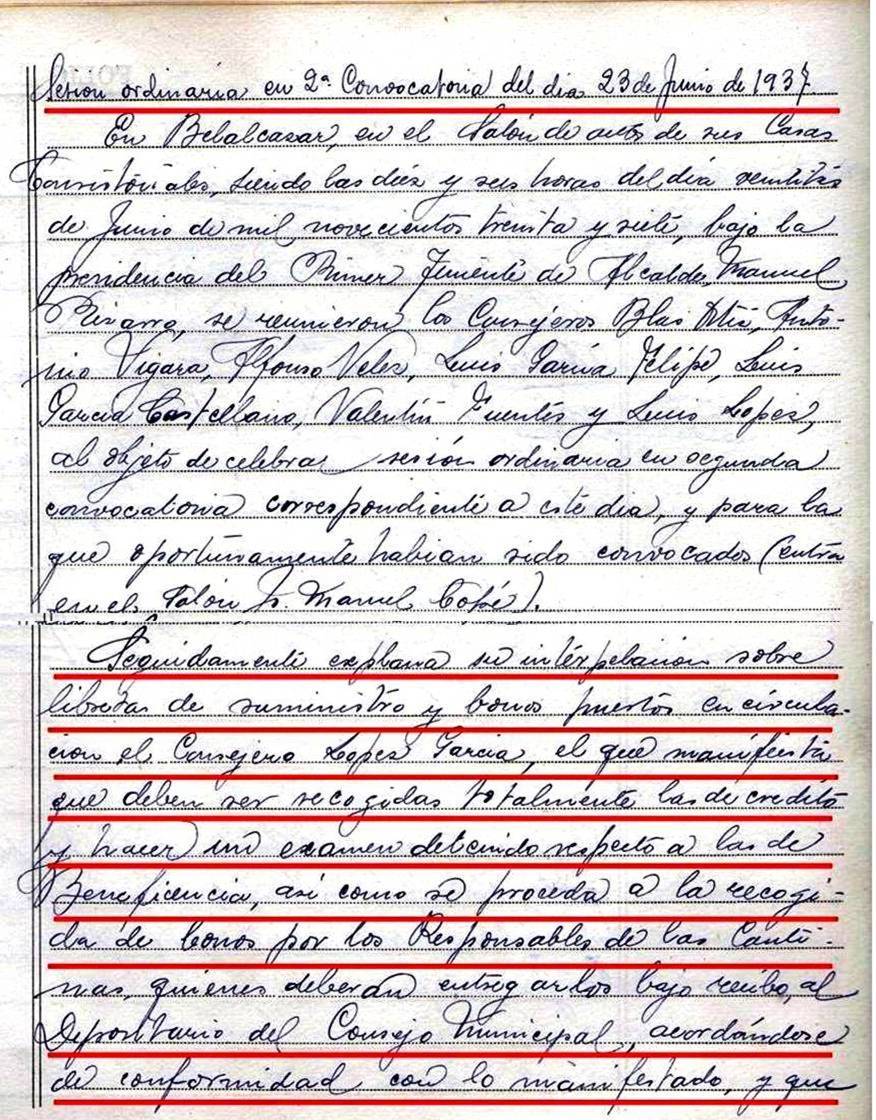 Sesion ordinaria en 2ª Convocatoria del dia 23 de Junio de 1937
En Belalcazar, en el Salón de actos de sus Casas
Consistoriales, siendo las diez y seis horas del dia ventitres
de Junio de mil novecientos treinta y siete, bajo la
presidencia del Primer Teniente de Alcalde, Manuel
Pizarro, se reunieron los Consejeros Blas Ortiz, Anto-
nio Vigara, Alfonso Velez, Luis Garcia Felipe, Luis
Garcia Castellano, Valentin Fuentes y Luis Lopez,
al objeto de celebrar sesión ordinaria en segunda
convocatoria correspondiente a este dia, y para la
que oportunamente habian sido convocados (entra
en el Salón D. Manuel Copé).
Seguidamente explana su interpelacion sobre
libretas de suministro y bonos puestos en circula-
cion el Consejero Lopez Garcia, el que manifiesta
que deben ser recogidas totalmente las de credito
y hacer un examen detenido respecto a las de
Beneficencia, así como se proceda a la recogi-
da de bonos por los Responsables de las Canti-
nas, quienes deberan entregarlos bajo recibo, al
Depositario del Consejo Municipal, acordándose
de conformidad con lo manifestado, y que